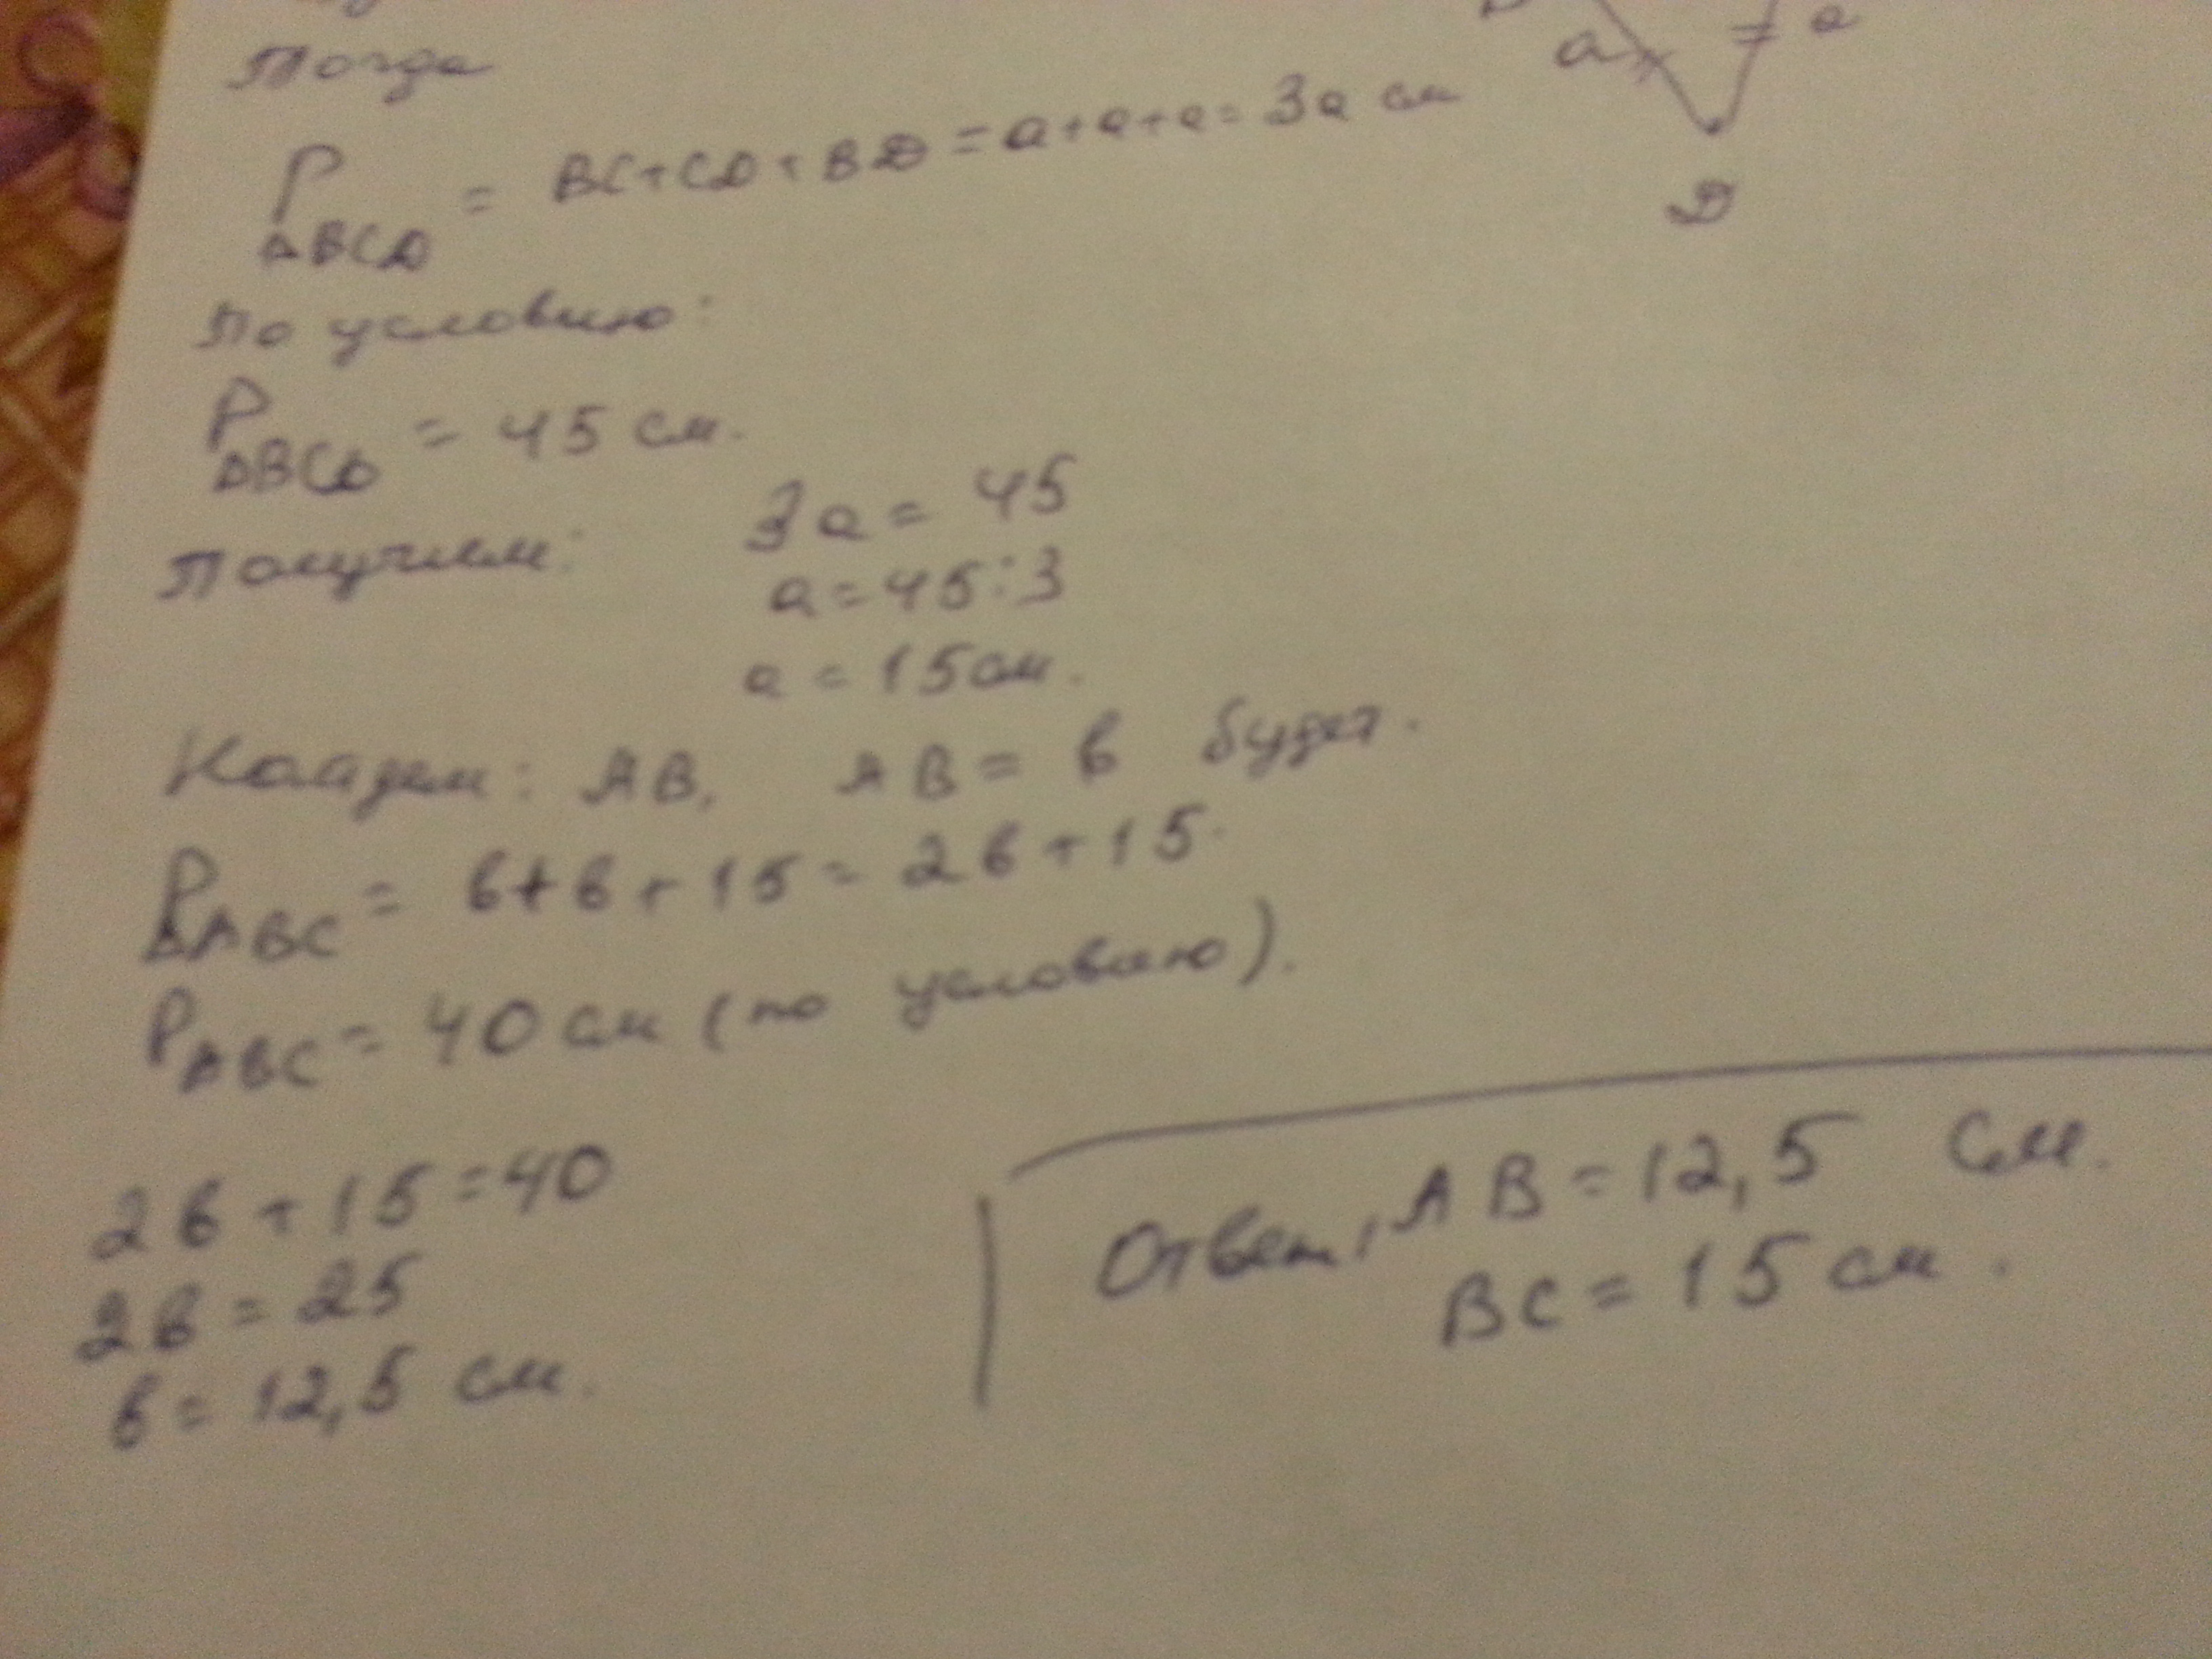 Тогда
a
a
D
P ΔBCD = BC+CD+BD = a+a+a = 3a см
По условию:
P ΔBCD = 45 см.
Получим: 3a = 45
a = 45:3
a = 15 см.
Найдем: AB, AB = в будет.
P ΔABC = в+в+15 = 2в+15.
P ABC = 40 см (по условию).
2в + 15 = 40
2в = 25
в = 12,5 см.
Ответ, AB = 12,5 см.
BC = 15 см.